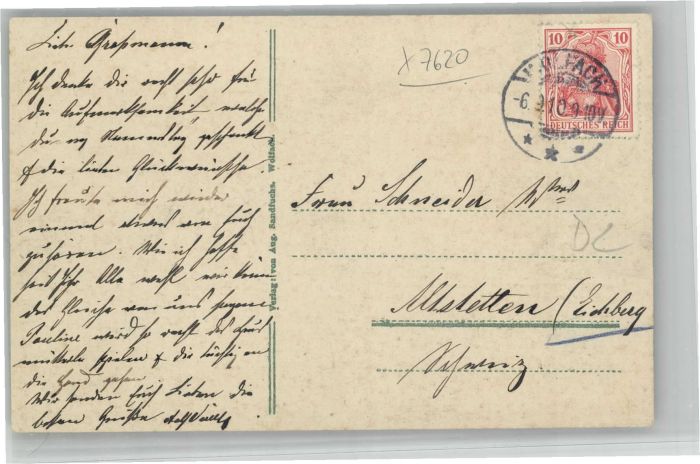 Liebe Großmama!
Ich danke dir recht sehr für
die Aufmerksamkeit welche
du Namenstag geschenkt
& die lieben Glückwünsche.
Ich freute mich wieder
einmal etwas von Euch
zu hören. Wie ich hoffe
seid Ihr Alle wohl, wir können
das Gleiche von uns sagen.
Pauline wird so recht das
spielen & die tüchtig an
die Hand gehen.
Wir senden Euch Lieben die
besten Grüße
Verlag: von Aug. Sandfuchs, Wolfach.
X 7620
10 10
DEUTSCHES REICH
WOLFACH
-6.9.10.9-10V
Frau Schneider Wwe
DC
Altstetten (Eichberg
Schweiz